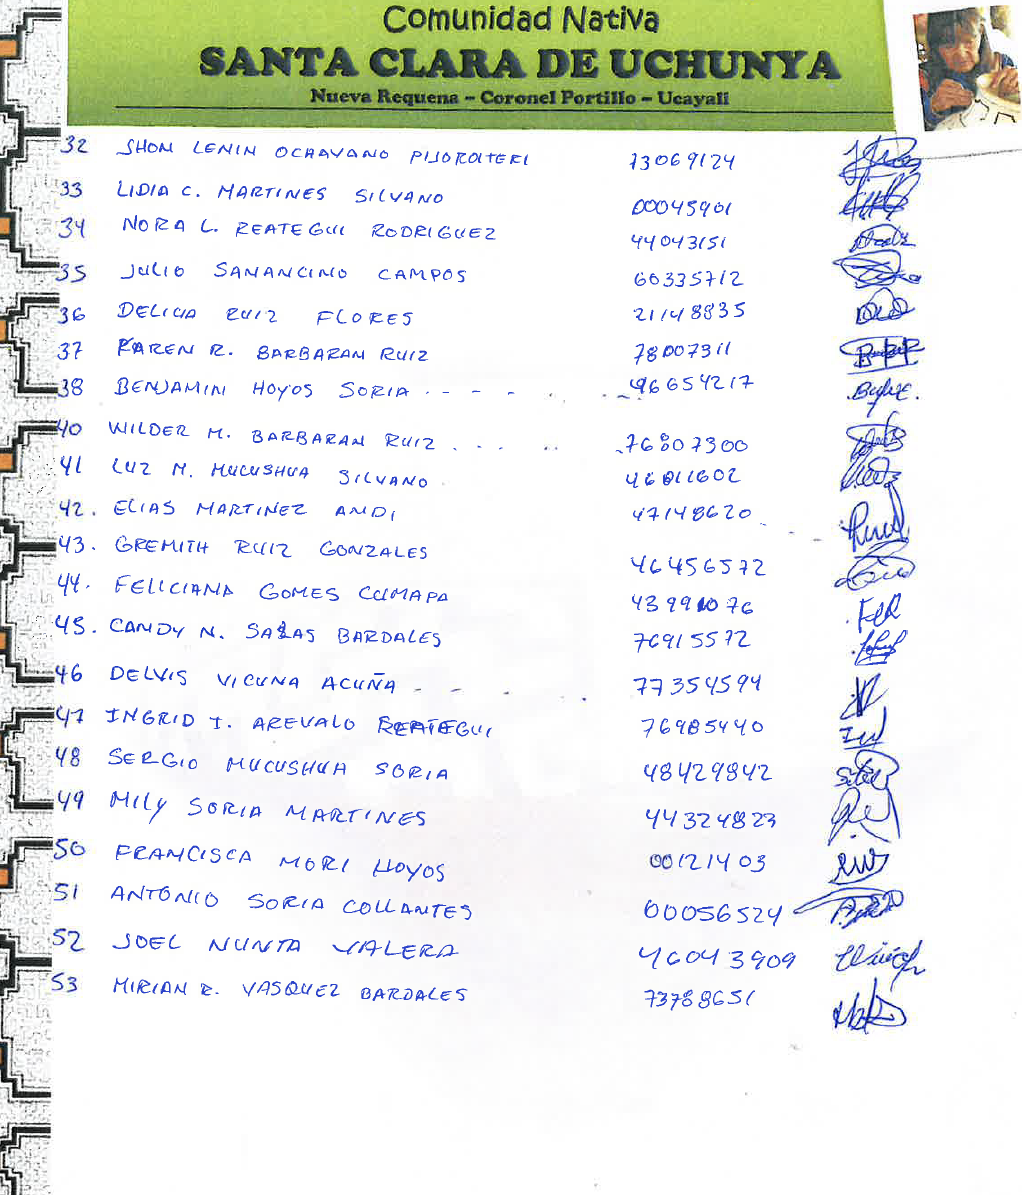 Comunidad Nativa
SANTA CLARA DE UCHUNYA
Nueva Requena – Coronel Portillo – Ucayali
32 JHON LENIN OCHAVANO 73069124
33 LIDIA C. MARTINES SILVANO 00045901
34 NORA L. REATEGUI RODRIGUEZ 44043151
35 JULIO SANANCINO CAMPOS 60335712
36 DELICIA RUIZ FLORES 21148835
37 KAREN R. BARBARAN RUIZ 78007311
38 BENJAMIN HOYOS SORIA 46654217
40 WILDER M. BARBARAN RUIZ 76807300
41 LUZ M. MUCUSHUA SILVANO 46011602
42. ELIAS MARTINEZ AMDI 47148620
43. GREMITH RUIZ GONZALES 46456572
44. FELICIANA GOMES CUMAPA
45. CANDY N. SALAS BARDALES 76915572
46 DELVIS VICUNA ACUÑA 77354594
47 INGRID I. AREVALO REATEGUI 76985440
48 SERGIO MUCUSHUA SORIA 48429842
49 MILY SORIA MARTINES 44324823
50 FRANCISCA MORI HOYOS 00121403
51 ANTONIO SORIA COLLANTES 00056524
52 JOEL NUNTA VALERA 46043909
53 MIRIAN R. VASQUEZ BARDALES 73788651